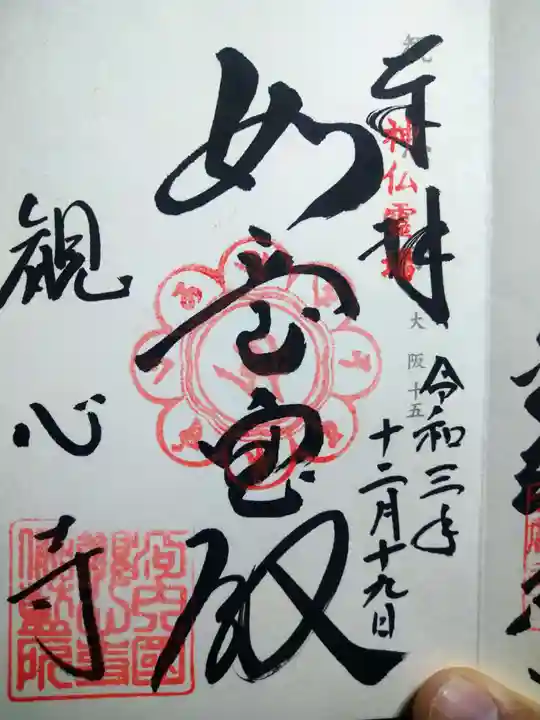 奉拝
神仏霊場
大阪十五
令和三年
十二月十九日
如意宝殿
観心寺
河内國